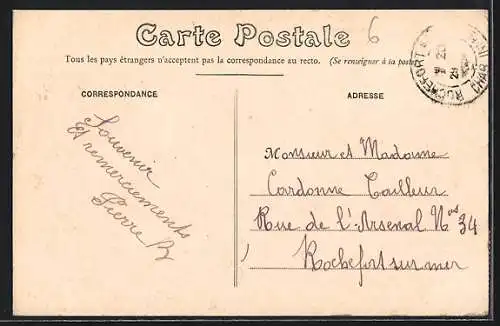 Carte Postale
6
Tous les pays étrangers n'acceptent pas la correspondance au recto. (Se renseigner à la poste
CORRESPONDANCE
Souvenir
Et remerciements
Pierre
ADRESSE
Monsieur et Madame
Cardonne Tailleur
Rue de l'Arsenal Nos 34
Rochefort sur mer
ROCHEFORT
CHAR